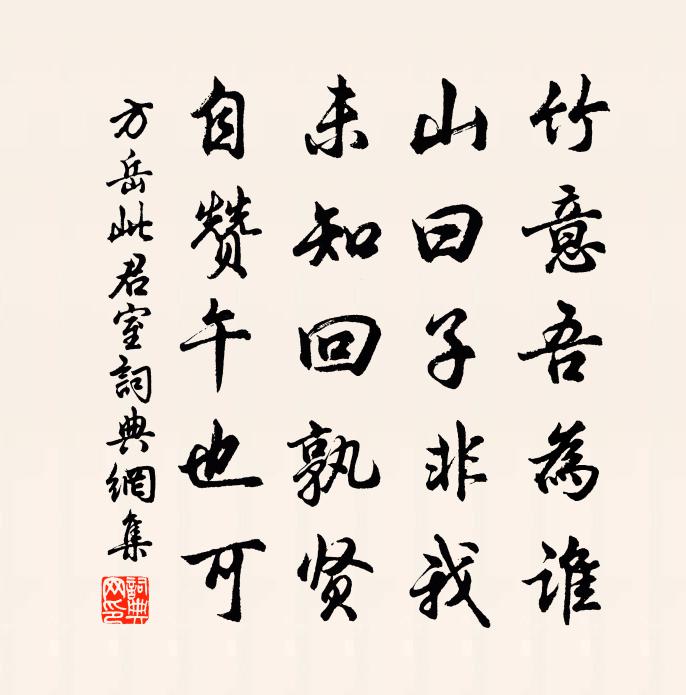 竹意吾為谁
山曰子非我
未知回孰贤
自赞午也可
方岳此君室詞典網集
詞典
网印